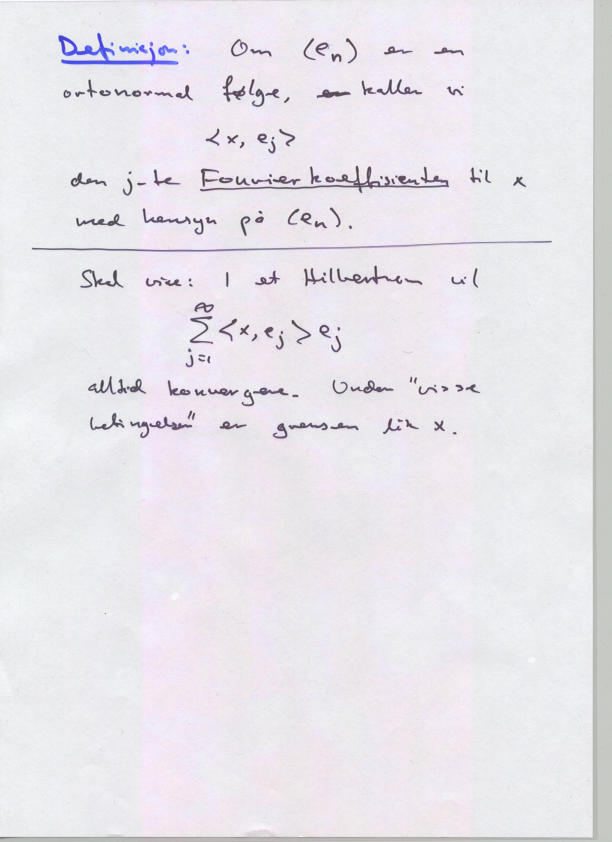 Definisjon: Om (eₙ) er en
ortonormal følge, kaller vi
<x, eⱼ>
den j-te Fourierkoeffisienten til x
med hensyn på (eₙ).
Skal vise: I et Hilbertrom vil
∞
Σ <x, eⱼ> eⱼ
j=1
alltid konvergere. Under "visse
betingelser" er grensen lik x.